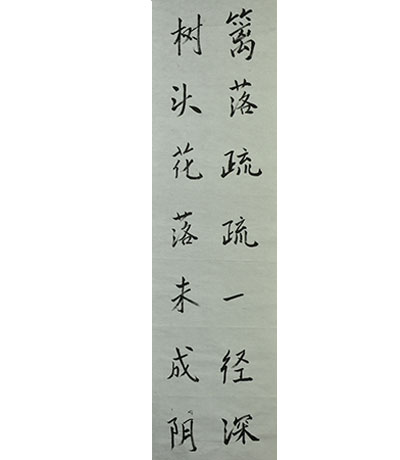 篱落疏疏一径深
树头花落未成阴